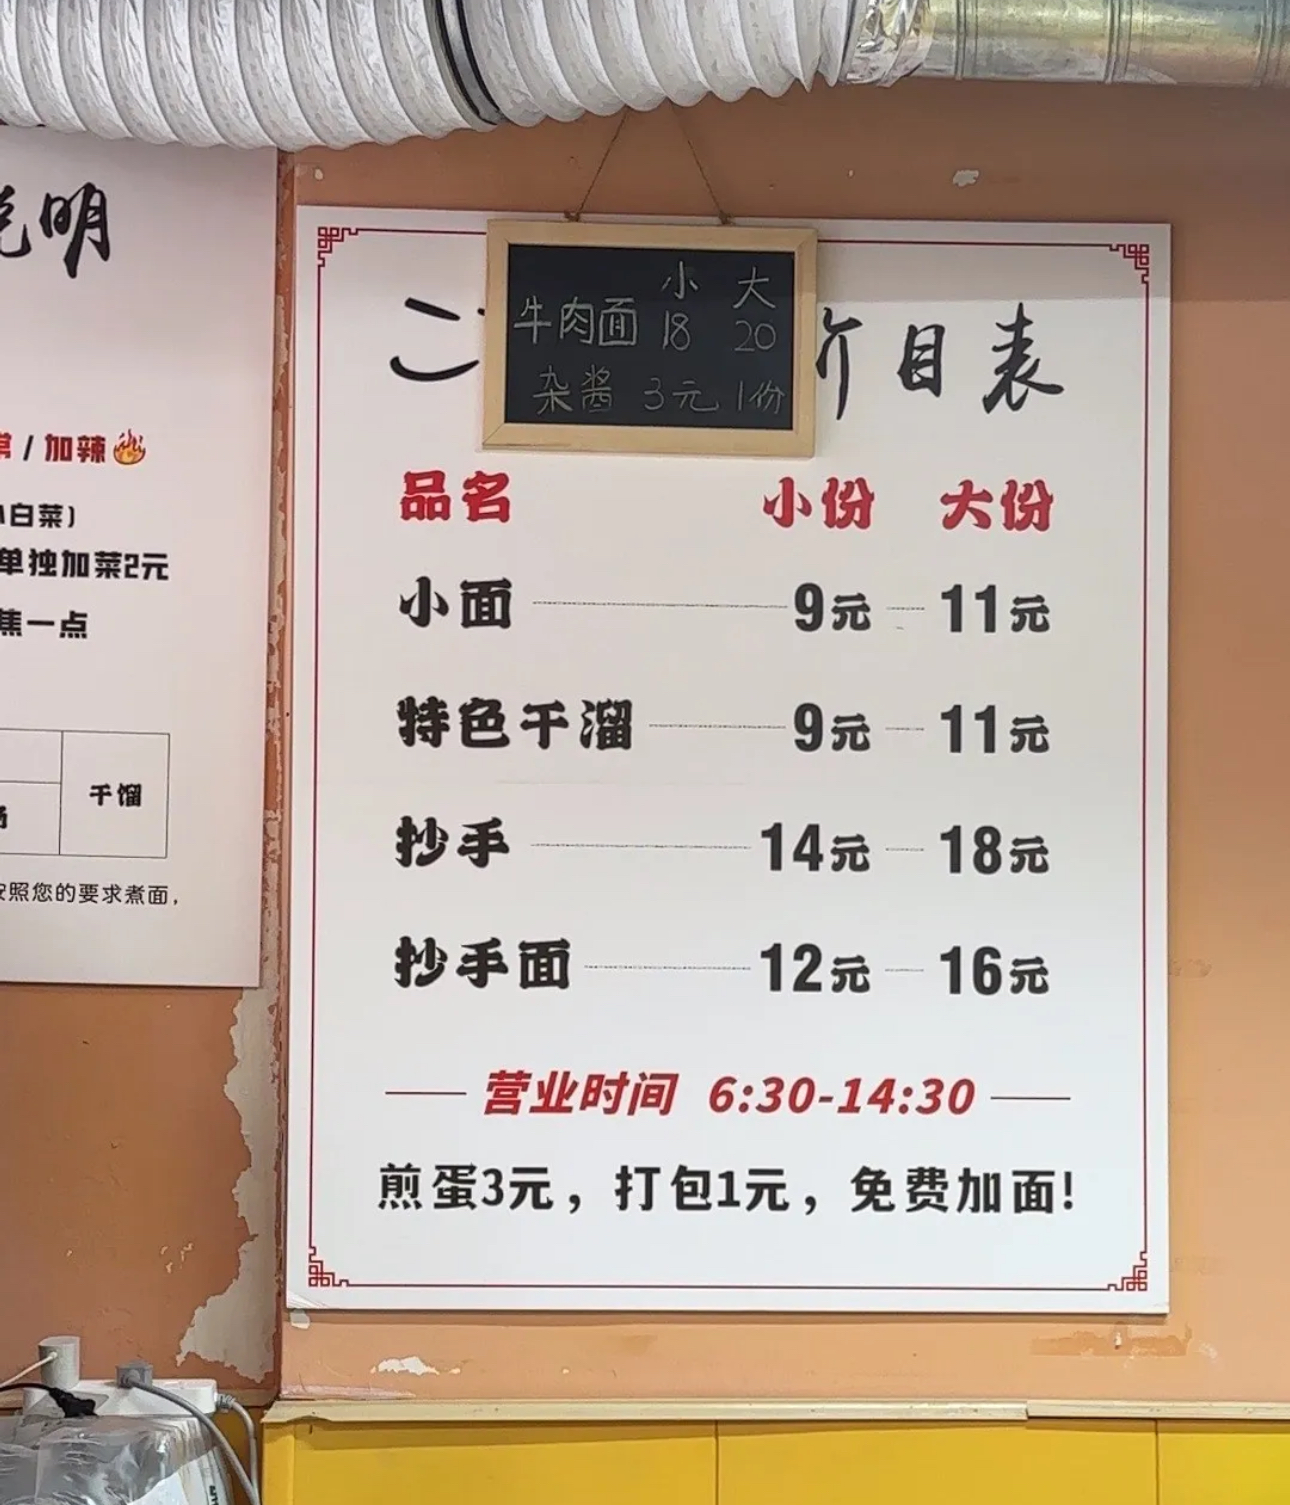 明
/加辣
白菜)
单独加菜2元
焦一点
干馏
按照您的要求煮面，
小 大
牛肉面 18 20
杂酱 3元 1份
价目表
品名 小份 大份
小面 9元 11元
特色干溜 9元 11元
抄手 14元 18元
抄手面 12元 16元
营业时间 6:30-14:30
煎蛋3元，打包1元，免费加面!